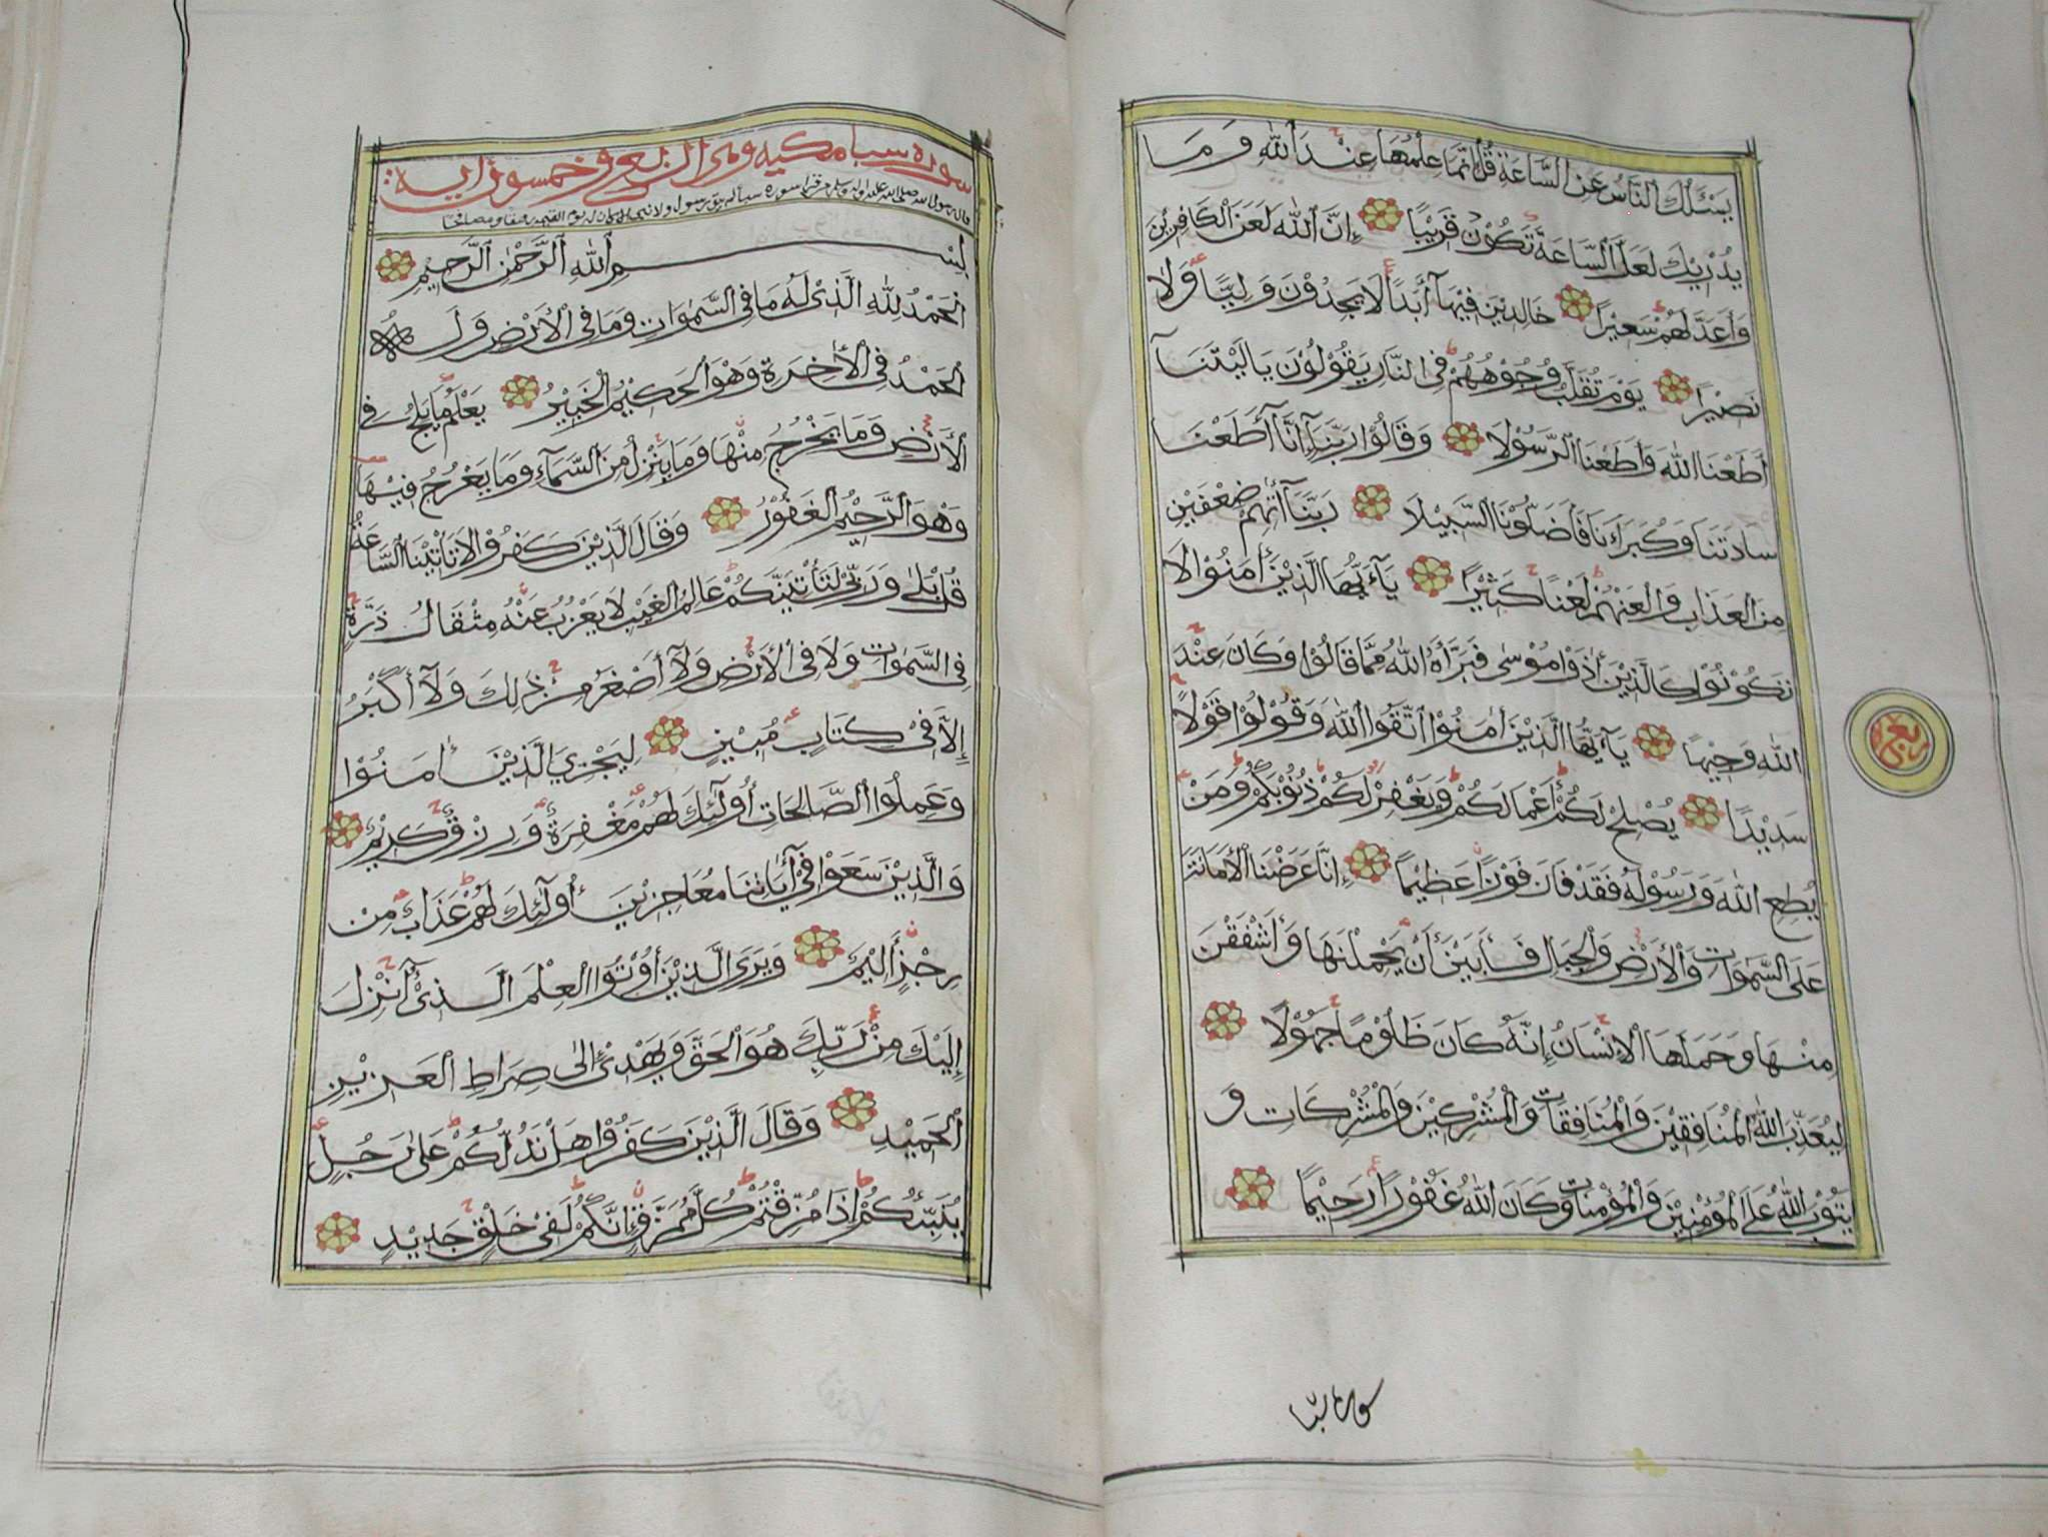 يَسْـَٔلُكَ ٱلنَّاسُ عَنِ ٱلسَّاعَةِ قُلْ إِنَّمَا عِلْمُهَا عِنْدَ ٱللّٰهِ وَمَا
يُدْرِيْكَ لَعَلَّ ٱلسَّاعَةَ تَكُوْنُ قَرِيْبًا إِنَّ ٱللّٰهَ لَعَنَ ٱلْكَافِرِيْنَ
وَأَعَدَّ لَهُمْ سَعِيْرًا خَالِدِيْنَ فِيْهَآ أَبَدًا لَا يَجِدُوْنَ وَلِيًّا وَّلَا
نَصِيْرًا يَوْمَ تُقَلَّبُ وُجُوْهُهُمْ فِى النَّارِ يَقُوْلُوْنَ يَالَيْتَنَآ
أَطَعْنَا اللّٰهَ وَأَطَعْنَا ٱلرَّسُوْلَا وَقَالُوْا رَبَّنَآ إِنَّآ أَطَعْنَا
سَادَتَنَا وَكُبَرَآءَنَا فَأَضَلُّوْنَا السَّبِيْلَا رَبَّنَآ أٰتِهِمْ ضِعْفَيْنِ
مِنَ الْعَذَابِ وَالْعَنْهُمْ لَعْنًا كَبِيْرًا يَآءَيُّهَا الَّذِيْنَ أٰمَنُوْا لَا
تَكُوْنُوْا كَالَّذِيْنَ أٰذَوْا مُوْسٰى فَبَرَّأَهُ اللّٰهُ مِمَّا قَالُوْا وَكَانَ عِنْدَ
اللّٰهِ وَجِيْهًا يَآءَيُّهَا الَّذِيْنَ أٰمَنُوْا ٱتَّقُوا اللّٰهَ وَقُوْلُوْا قَوْلًا
سَدِيْدًا يُصْلِحْ لَكُمْ أَعْمَالَكُمْ وَيَغْفِرْ لَكُمْ ذُنُوْبَكُمْ وَمَنْ
يُطِعِ اللّٰهَ وَرَسُوْلَهُ فَقَدْ فَازَ فَوْزًا عَظِيْمًا إِنَّا عَرَضْنَا ٱلْأَمَانَةَ
عَلَى السَّمٰوَاتِ وَٱلْأَرْضِ وَٱلْجِبَالِ فَأَبَيْنَ أَنْ يَّحْمِلْنَهَا وَأَشْفَقْنَ
مِنْهَا وَحَمَلَهَا ٱلْإِنْسَانُ إِنَّهُ كَانَ ظَلُوْمًا جَهُوْلًا
لِيُعَذِّبَ اللّٰهُ الْمُنَافِقِيْنَ وَٱلْمُنَافِقَاتِ وَٱلْمُشْرِكِيْنَ وَٱلْمُشْرِكَاتِ وَ
يَتُوْبَ اللّٰهُ عَلَى ٱلْمُؤْمِنِيْنَ وَٱلْمُؤْمِنَاتِ وَكَانَ اللّٰهُ غَفُوْرًا رَحِيْمًا
ربع
سورة سبا مكيه وهى اربع وخمسون اية
قال رسول الله صلى الله عليه واله وسلم من قرأ سورة سبأ لم يبق رسول ولا نبى الا كان له يوم القيمة رفيقا ومصافحا
بِسْمِ ٱللّٰهِ ٱلرَّحْمٰنِ ٱلرَّحِيْمِ
ٱلْحَمْدُ لِلّٰهِ الَّذِىْ لَهُ مَا فِى السَّمٰوَاتِ وَمَا فِى ٱلْأَرْضِ وَلَهُ
ٱلْحَمْدُ فِى ٱلْأٰخِرَةِ وَهُوَ ٱلْحَكِيْمُ الْخَبِيْرُ يَعْلَمُ مَا يَلِجُ فِى
ٱلْأَرْضِ وَمَا يَخْرُجُ مِنْهَا وَمَا يَنْزِلُ مِنَ ٱلسَّمَآءِ وَمَا يَعْرُجُ فِيْهَا
وَهُوَ ٱلرَّحِيْمُ ٱلْغَفُوْرُ وَقَالَ الَّذِيْنَ كَفَرُوْا لَا تَأْتِيْنَا السَّاعَةُ
قُلْ بَلٰى وَرَبِّىْ لَتَأْتِيَنَّكُمْ عَالِمِ الْغَيْبِ لَا يَعْزُبُ عَنْهُ مِثْقَالُ ذَرَّةٍ
فِى السَّمٰوَاتِ وَلَا فِى ٱلْأَرْضِ وَلَآ أَصْغَرُ مِنْ ذٰلِكَ وَلَآ أَكْبَرُ
إِلَّا فِىْ كِتَابٍ مُّبِيْنٍ لِيَجْزِيَ الَّذِيْنَ أٰمَنُوْا
وَعَمِلُوا ٱلصَّالِحَاتِ أُولَٰٓئِكَ لَهُمْ مَغْفِرَةٌ وَّرِزْقٌ كَرِيْمٌ
وَالَّذِيْنَ سَعَوْا فِىْٓ أٰيَاتِنَا مُعَاجِزِيْنَ أُولَٰٓئِكَ لَهُمْ عَذَابٌ مِنْ
رِجْزٍ أَلِيْمٌ وَيَرَى الَّذِيْنَ أُوْتُوا ٱلْعِلْمَ الَّذِىْٓ أُنْزِلَ
إِلَيْكَ مِنْ رَّبِّكَ هُوَ ٱلْحَقَّ وَيَهْدِىْٓ إِلٰى صِرَاطِ ٱلْعَزِيْزِ
ٱلْحَمِيْدِ وَقَالَ الَّذِيْنَ كَفَرُوْا هَلْ نَدُلُّكُمْ عَلٰى رَجُلٍ
يُنَبِّئُكُمْ إِذَا مُزِّقْتُمْ كُلَّ مُمَزَّقٍ إِنَّكُمْ لَفِىْ خَلْقٍ جَدِيْدٍ